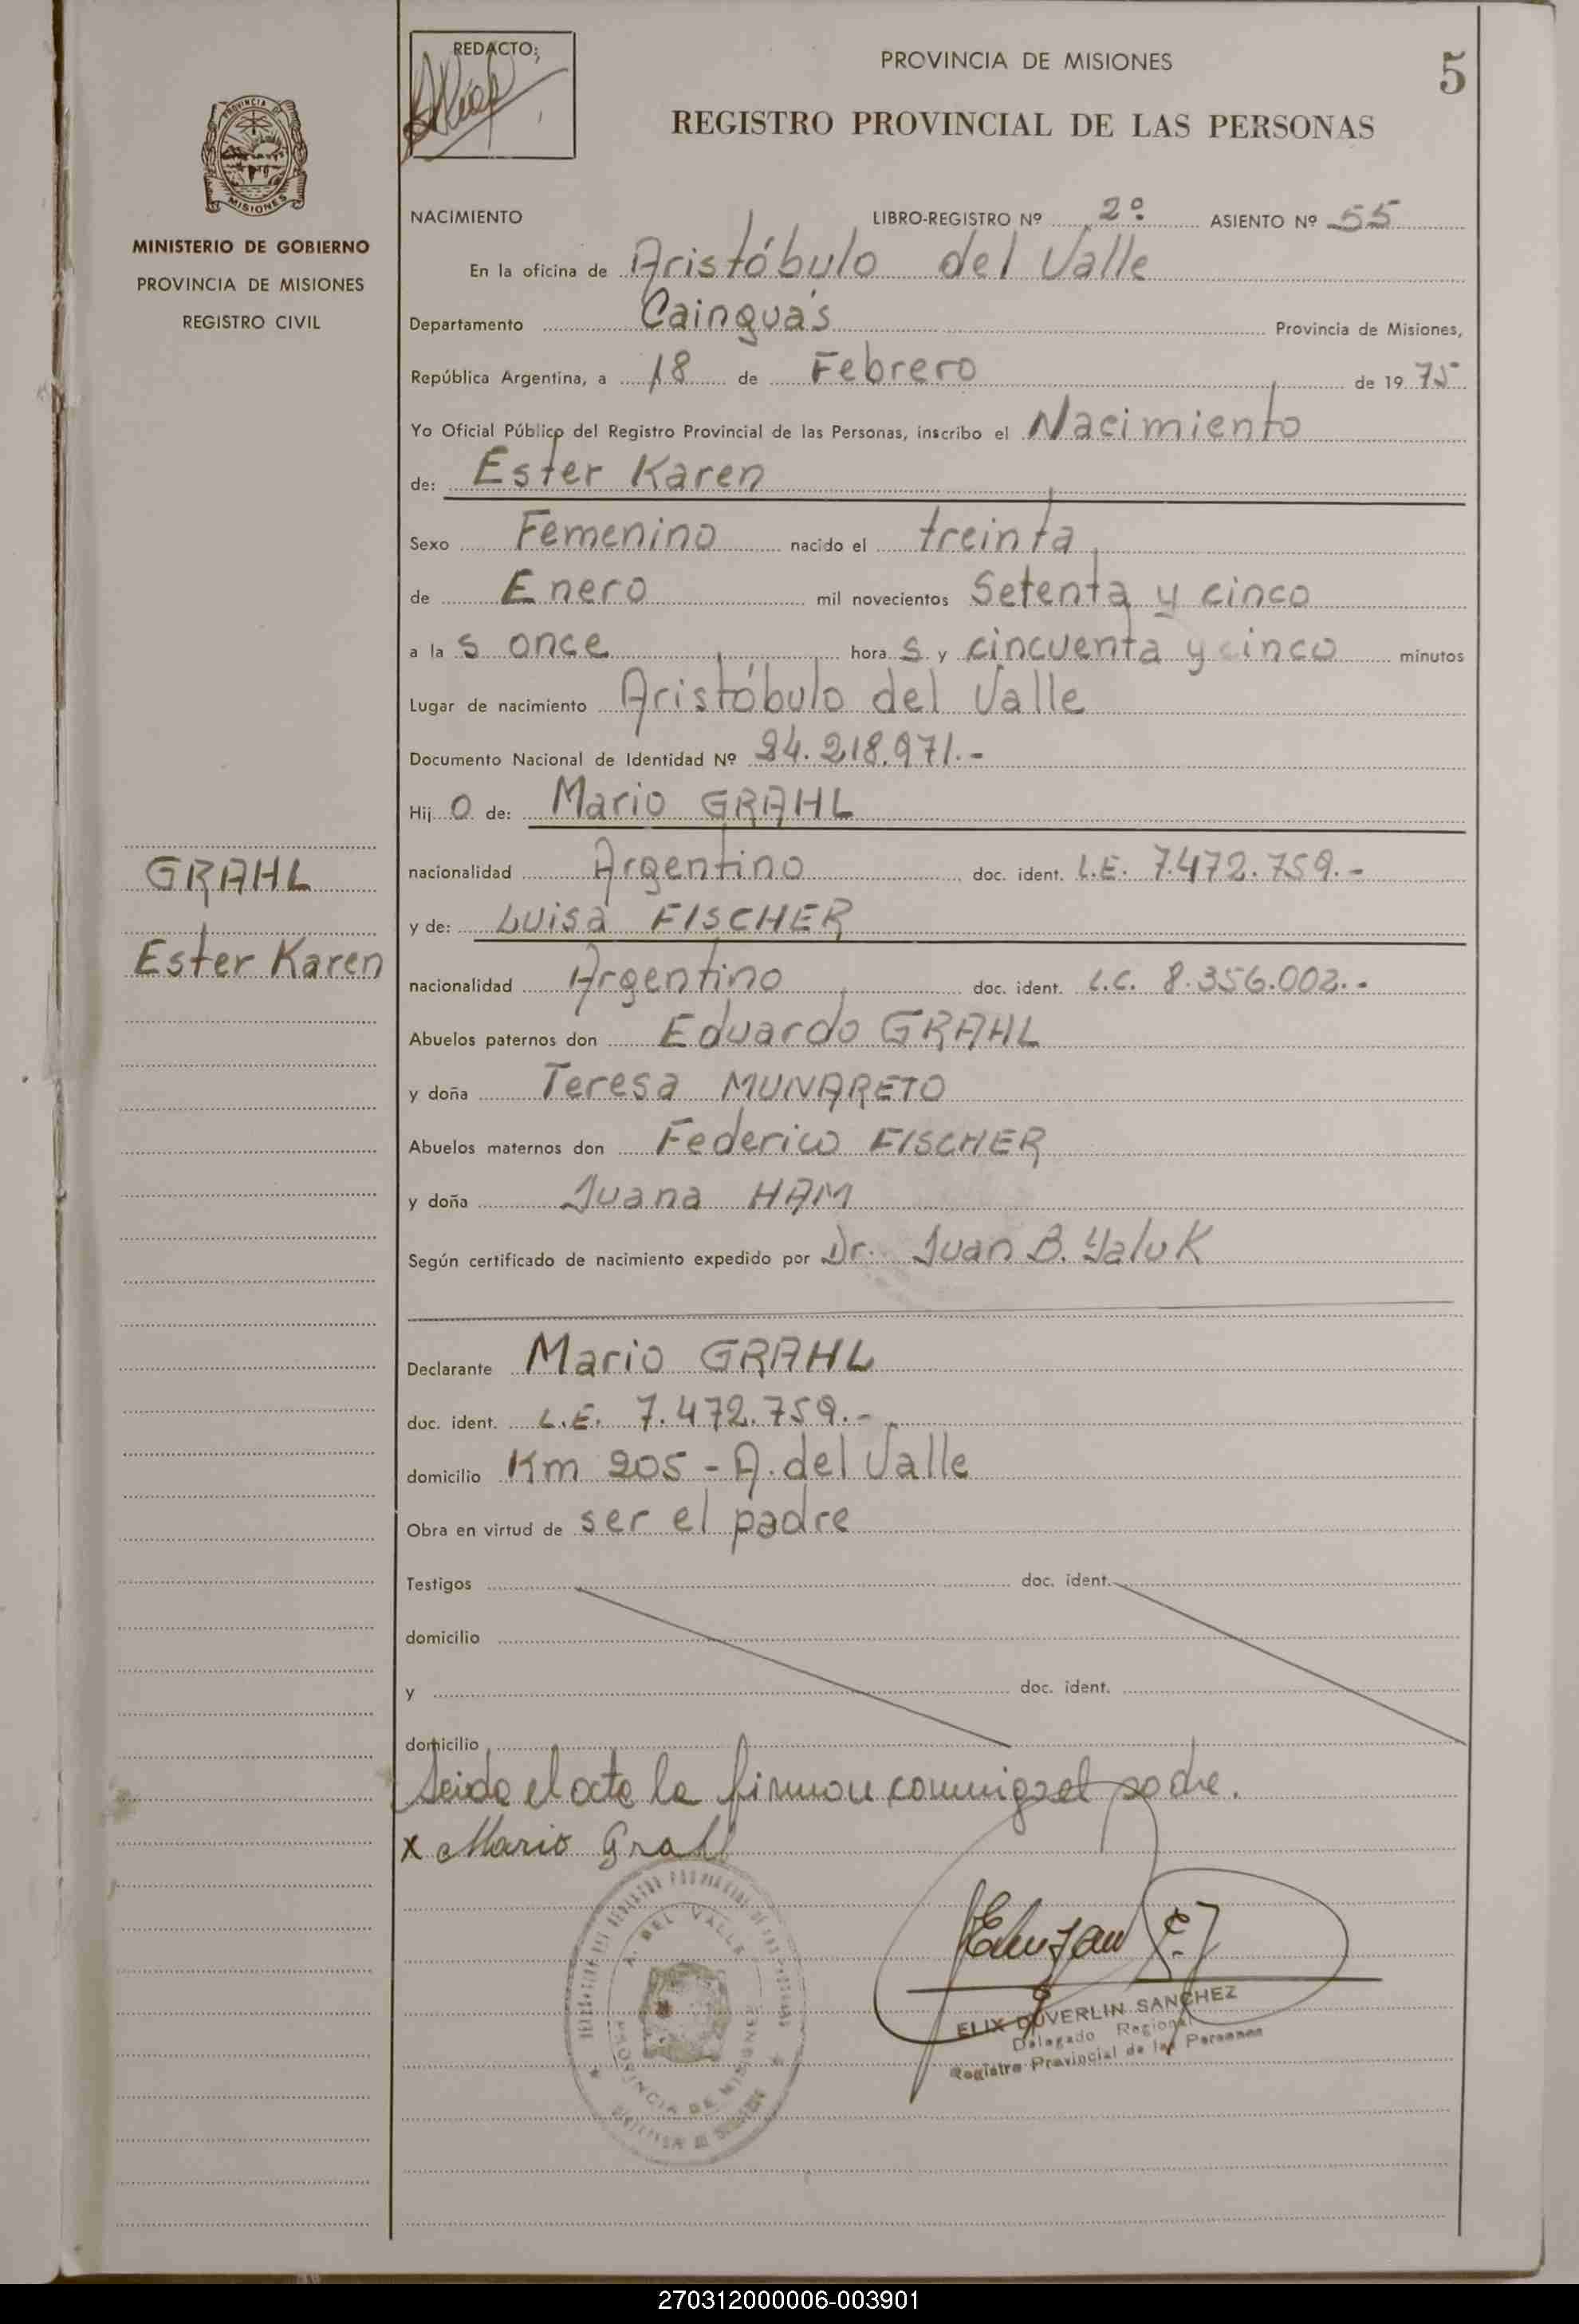 REDACTO;
PROVINCIA DE MISIONES
5
REGISTRO PROVINCIAL DE LAS PERSONAS
MISIONES
MINISTERIO DE GOBIERNO
PROVINCIA DE MISIONES
REGISTRO CIVIL
NACIMIENTO LIBRO-REGISTRO Nº 2º ASIENTO Nº 55
En la oficina de Aristóbulo del Valle
Departamento Cainguás Provincia de Misiones,
República Argentina, a 18 de Febrero de 19 75
Yo Oficial Público del Registro Provincial de las Personas, inscribo el Nacimiento
de: Ester Karen
Sexo Femenino nacido el treinta
de Enero mil novecientos Setenta y cinco
a la s once hora s y cincuenta y cinco minutos
Lugar de nacimiento Aristóbulo del Valle
Documento Nacional de Identidad Nº 24.218.971.-
Hij o de: Mario GRAHL
nacionalidad Argentino doc. ident. L.E. 7.472.759.-
y de: Luisa FISCHER
nacionalidad Argentino doc. ident. L.C. 8.356.002.-
Abuelos paternos don Eduardo GRAHL
y doña Teresa MUNARETO
Abuelos maternos don Federico FISCHER
y doña Juana HAM
Según certificado de nacimiento expedido por Dr. Juan B. Yaluk
GRAHL
Ester Karen
Declarante Mario GRAHL
doc. ident. L.E. 7.472.759.-
domicilio Km 205 - A. del Valle
Obra en virtud de ser el padre
Testigos doc. ident.
domicilio
y doc. ident.
domicilio
Leida el acta la firman conmigo el padre.
x Mario Grahl
A. DEL VALLE
PROVINCIA DE MISIONES
ELIX DUVERLIN SANCHEZ
Delegado Regional
Registro Provincial de las Personas
270312000006-003901